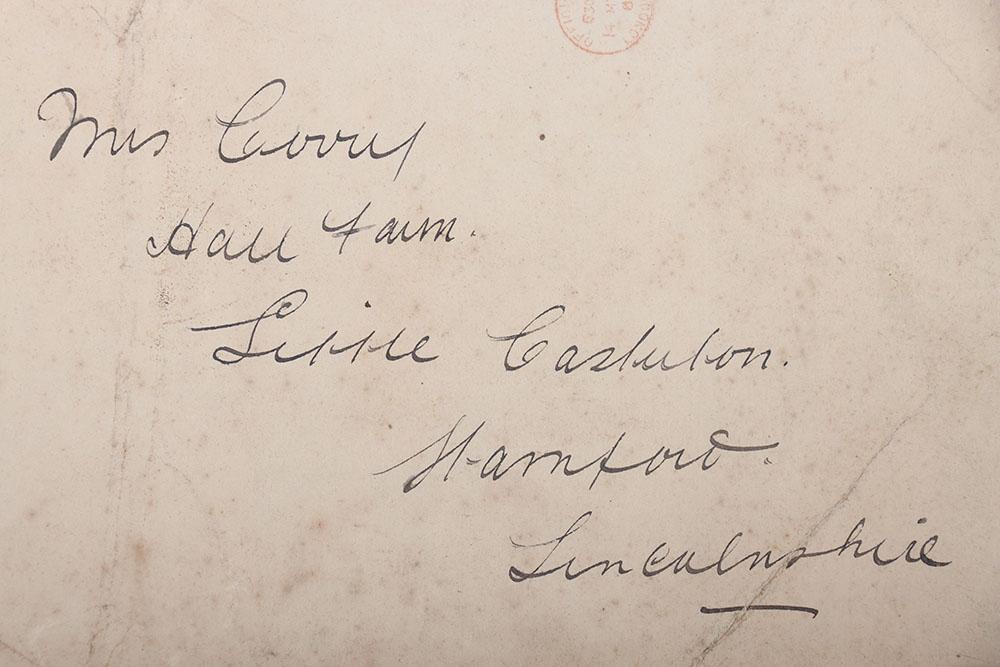 Mrs Corry
Hall Farm.
Little Casterton.
Stamford.
Lincolnshire